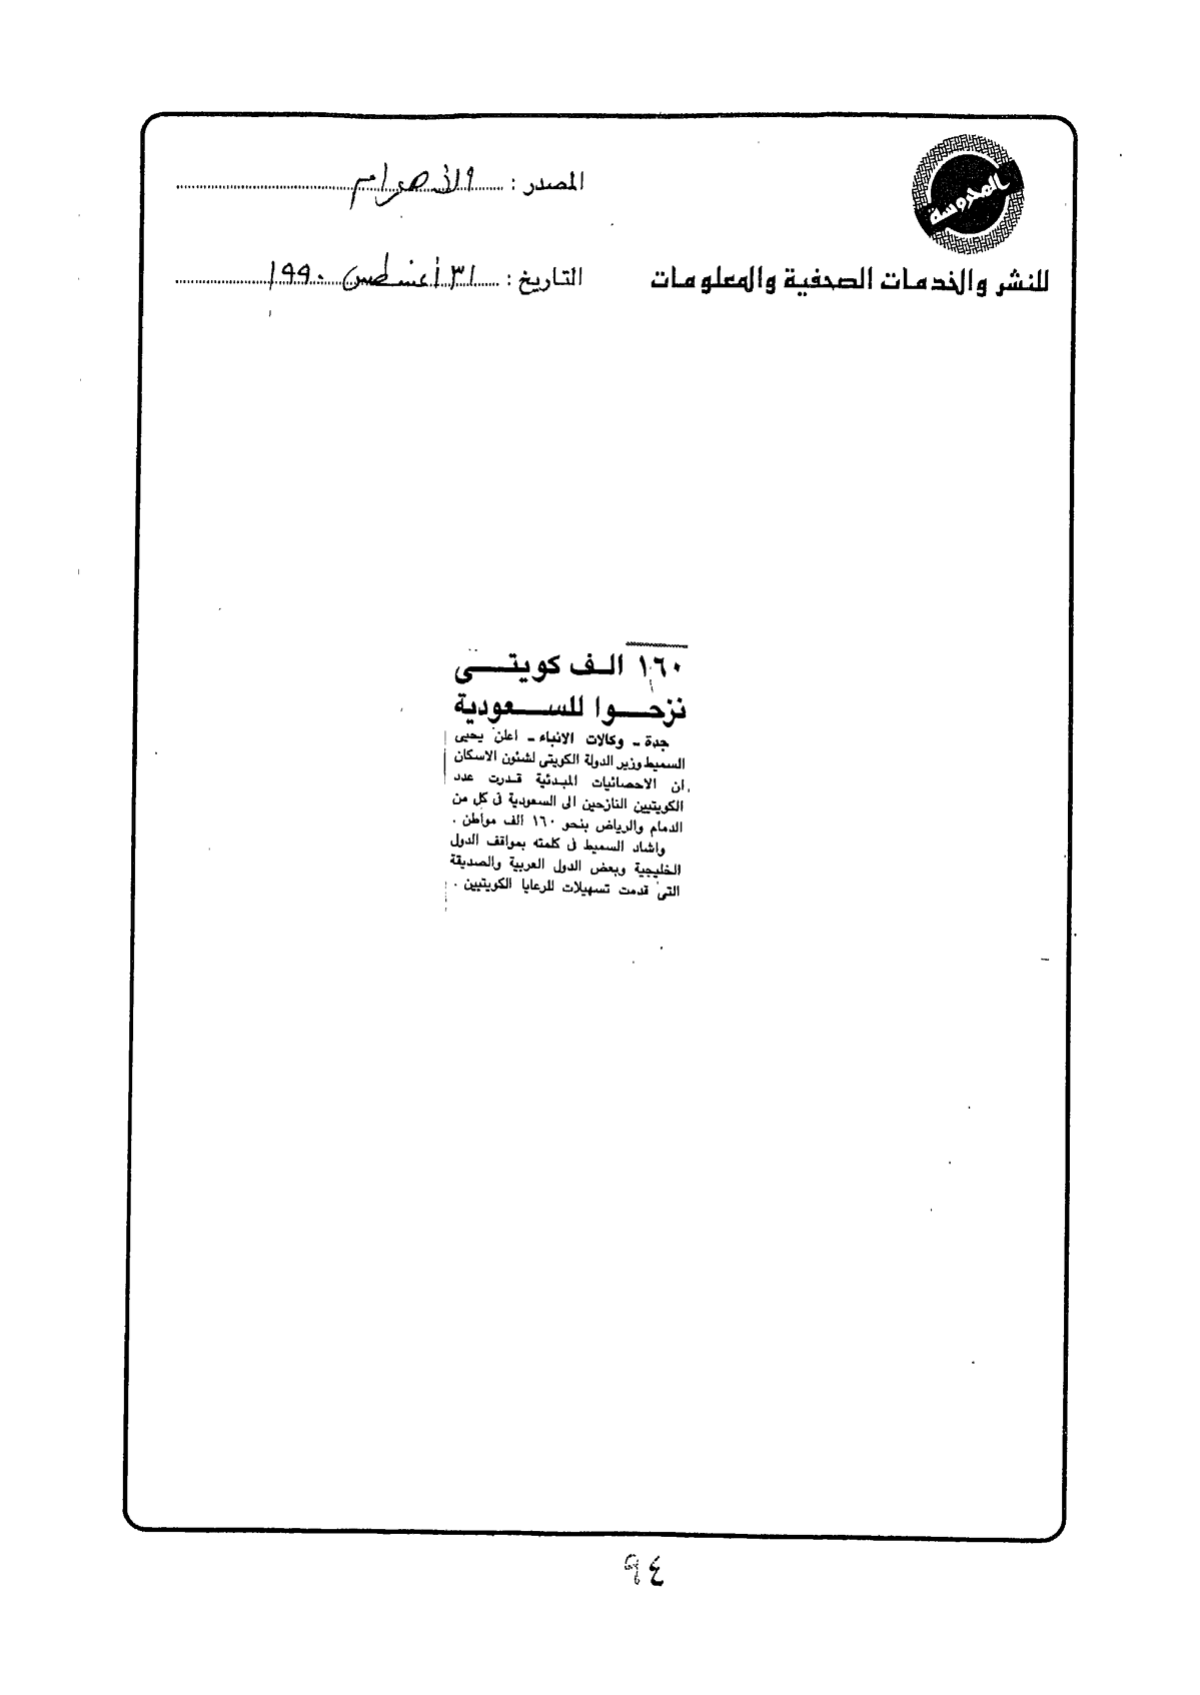 المحروسة
للنشر والخدمات الصحفية والمعلومات
المصدر : الأهرام
التاريخ : ٣١ أغسطس ١٩٩٠
١٦٠ الف كويتى
نزحوا للسعودية
جدة ـ وكالات الانباء ـ اعلن يحيى
السميط وزير الدولة الكويتى لشئون الاسكان
ان الاحصائيات المبدئية قدرت عدد
الكويتيين النازحين الى السعودية فى كل من
الدمام والرياض بنحو ١٦٠ الف مواطن .
واشاد السميط فى كلمته بمواقف الدول
الخليجية وبعض الدول العربية والصديقة
التى قدمت تسهيلات للرعايا الكويتيين .
٩٤